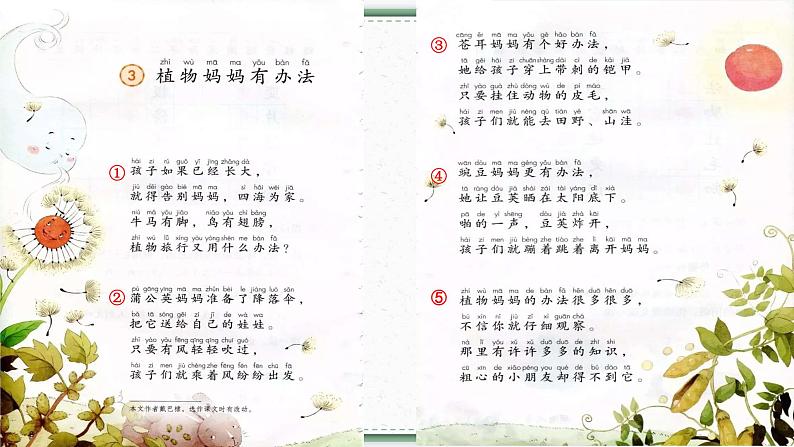 zhí wù mā ma yǒu bàn fǎ
3 植物妈妈有办法
①
hái zi rú guǒ yǐ jīng zhǎng dà
孩子如果已经长大，
jiù děi gào bié mā ma sì hǎi wéi jiā
就得告别妈妈，四海为家。
niú mǎ yǒu jiǎo niǎo yǒu chì bǎng
牛马有脚，鸟有翅膀，
zhí wù lǚ xíng yòu yòng shén me bàn fǎ
植物旅行又用什么办法？
②
pú gōng yīng mā ma zhǔn bèi le jiàng luò sǎn
蒲公英妈妈准备了降落伞，
bǎ tā sòng gěi zì jǐ de wá wa
把它送给自己的娃娃。
zhǐ yào yǒu fēng qīng qīng chuī guò
只要有风轻轻吹过，
hái zi men jiù chéng zhe fēng fēn fēn chū fā
孩子们就乘着风纷纷出发。
本文作者戴巴棣，选作课文时有改动。
③
cāng ěr mā ma yǒu gè hǎo bàn fǎ
苍耳妈妈有个好办法，
tā gěi hái zi chuān shàng dài cì de kǎi jiǎ
她给孩子穿上带刺的铠甲。
zhǐ yào guà zhù dòng wù de pí máo
只要挂住动物的皮毛，
hái zi men jiù néng qù tián yě shān wā
孩子们就能去田野、山洼。
④
wān dòu mā ma gèng yǒu bàn fǎ
豌豆妈妈更有办法，
tā ràng dòu jiá shài zài tài yáng dǐ xià
她让豆荚晒在太阳底下。
pā de yì shēng dòu jiá zhà kāi
啪的一声，豆荚炸开，
hái zi men jiù bèng zhe tiào zhe lí kāi mā ma
孩子们就蹦着跳着离开妈妈。
⑤
zhí wù mā ma de bàn fǎ hěn duō hěn duō
植物妈妈的办法很多很多，
bú xìn nǐ jiù zǐ xì guān chá
不信你就仔细观察。
nà lǐ yǒu xǔ xǔ duō duō de zhī shi
那里有许许多多的知识，
cū xīn de xiǎo péng yǒu què dé bú dào tā
粗心的小朋友却得不到它。